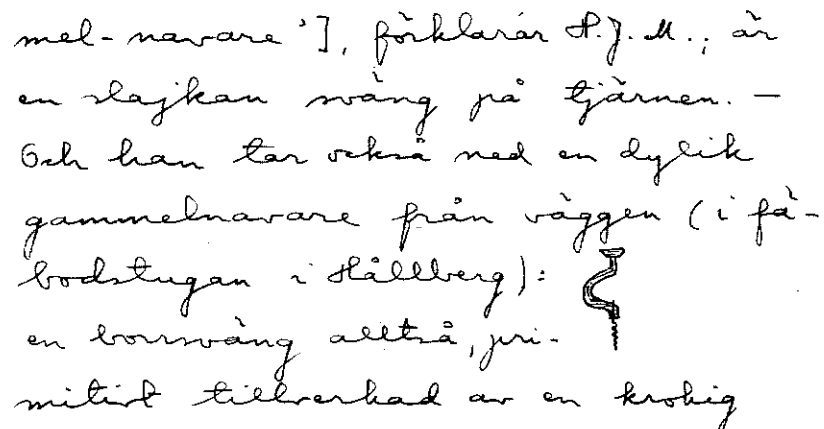 mel-navare'], förklarar H.J.M., är
en slajkan sväng på tjärnen. —
Och han tar också ned en dylik
gammelnavare från väggen (i fä-
bodstugan i Hållberg):
en borrsväng alltså, pri-
mitivt tillverkad av en krokig